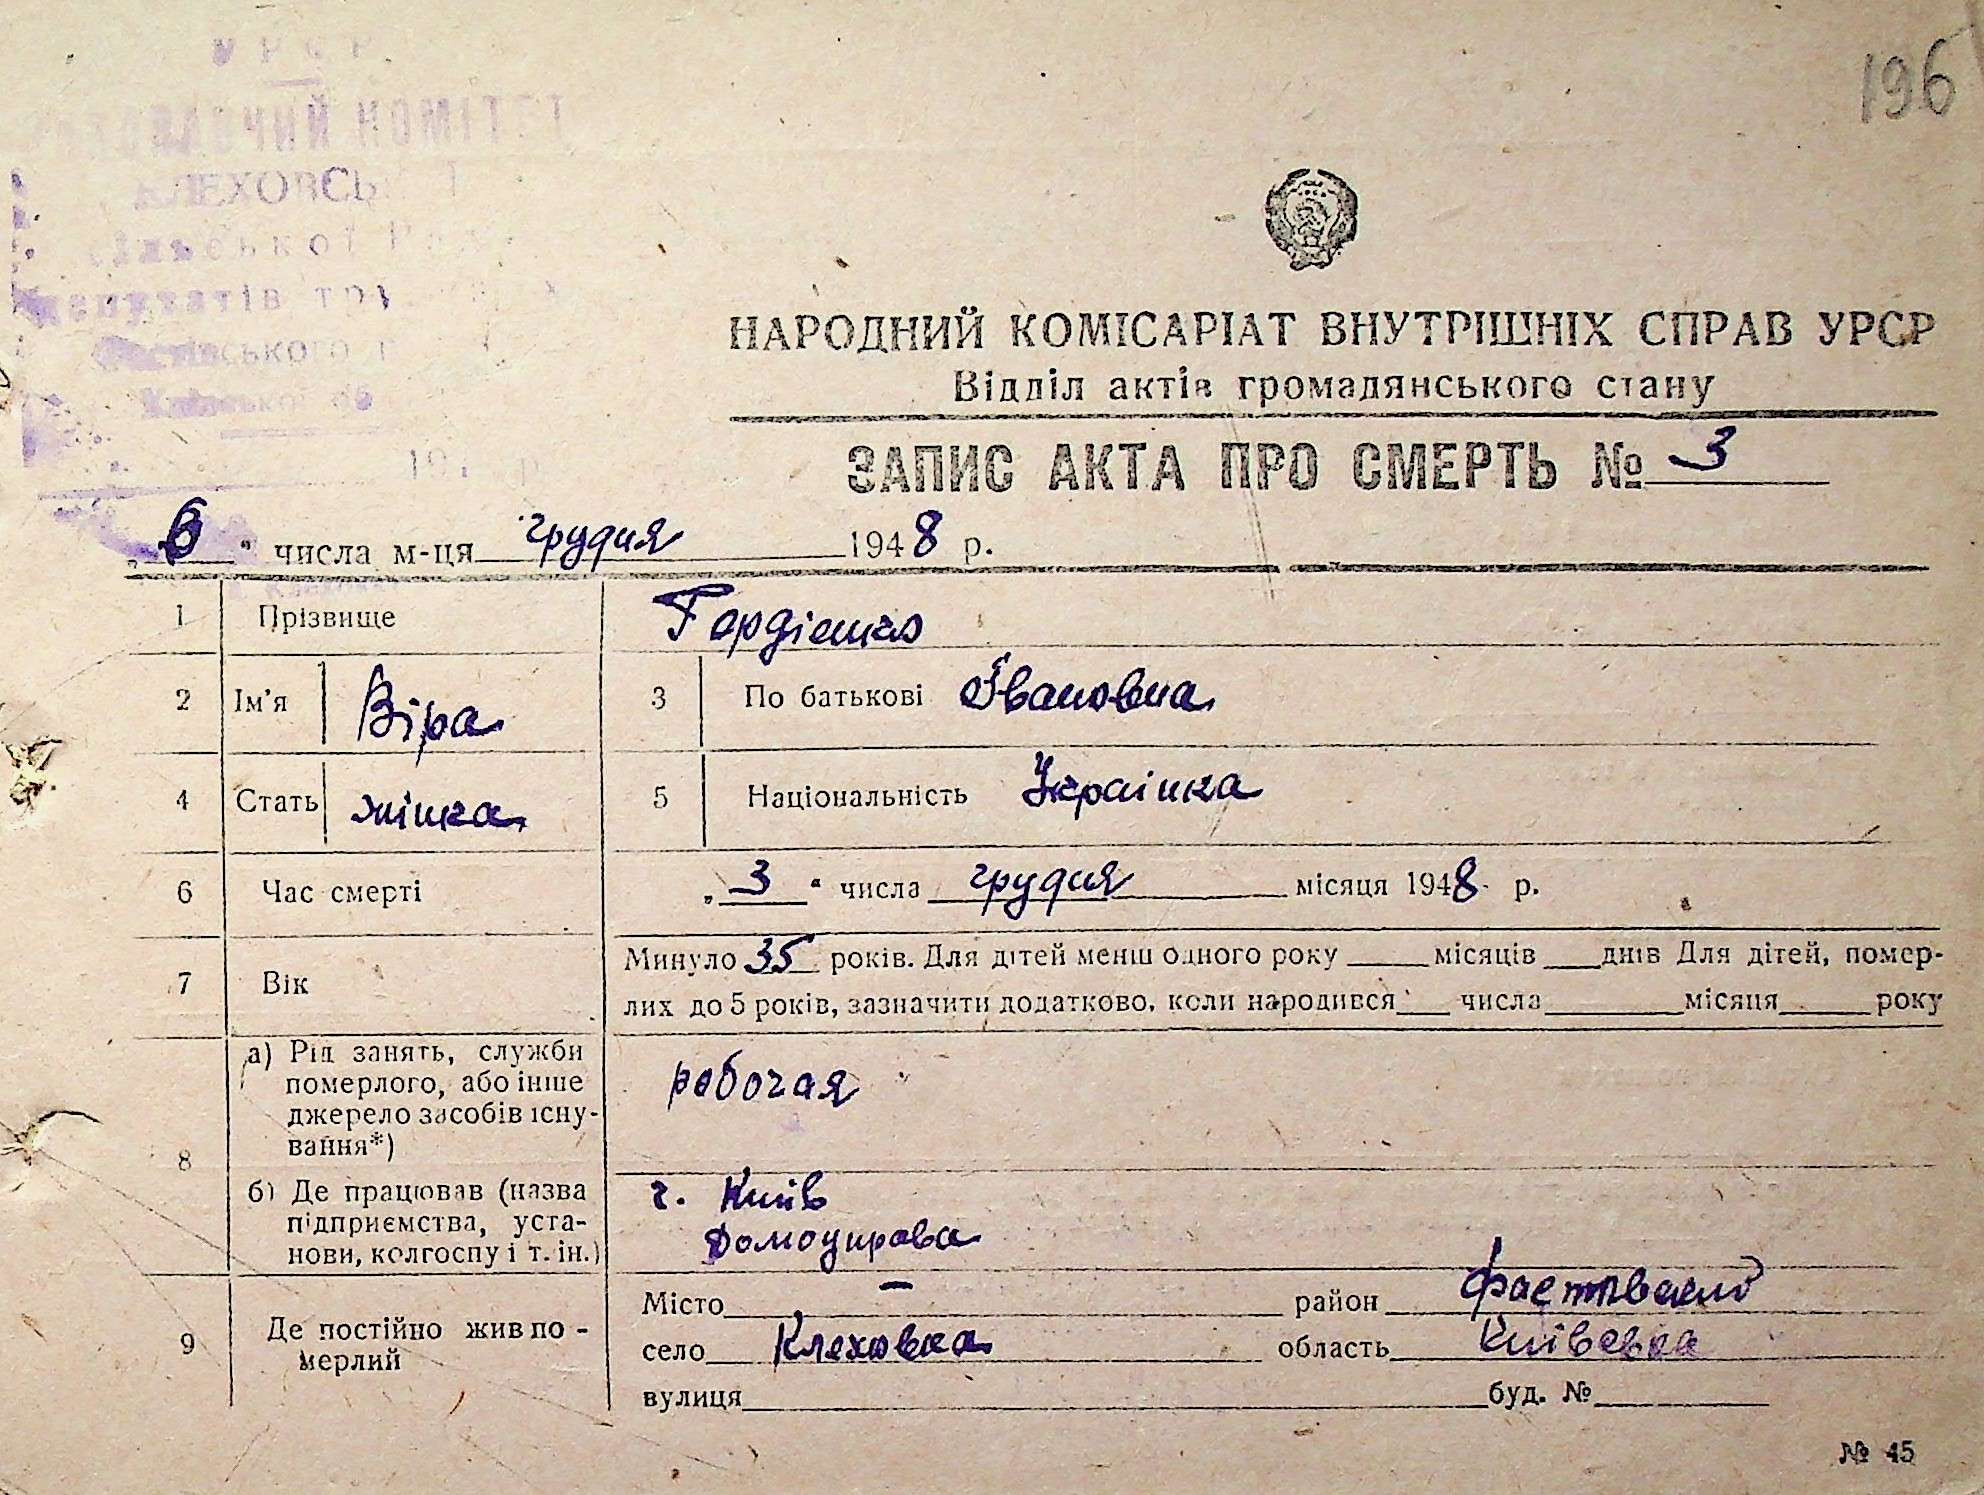 УРСР
КОМІТЕТ
КЛЕХОВСЬ
депутатів
196
НАРОДНИЙ КОМІСАРІАТ ВНУТРІШНІХ СПРАВ УРСР
Відділ актів громадянського стану
ЗАПИС АКТА ПРО СМЕРТЬ № 3
„ 6 “ числа м-ця грудня 1948 р.
1 Прізвище Гордієнко
2 Ім'я Віра 3 По батькові Івановна
4 Стать жінка 5 Національність Українка
6 Час смерті „ 3 “ числа грудня місяця 1948 р.
7 Вік Минуло 35 років. Для дітей менш одного року ____ місяців ____ днів Для дітей, помер-
лих до 5 років, зазначити додатково, коли народився ____ числа ____ місяця ____ року
8 а) Рід занять, служби
померлого, або інше
джерело засобів існу-
вання*) робочая
б) Де працював (назва
підприємства, уста-
нови, колгоспу і т. ін.) г. Київ
Домоуправа
9 Де постійно жив по-
мерлий
Місто – район Фастівський
село Клеховка область Київська
вулиця ____ буд. № ____
№ 45